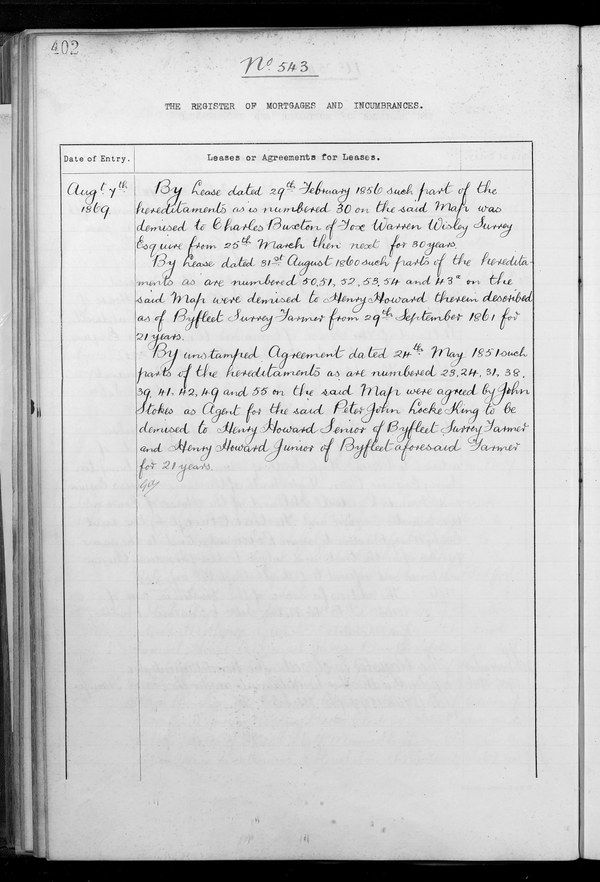 402
No. 543
THE REGISTER OF MORTGAGES AND INCUMBRANCES.
Date of Entry.
Leases or Agreements for Leases.
Augt. 7th
1869
By Lease dated 29th February 1856 such part of the
hereditaments as is numbered 30 on the said Map was
demised to Charles Buxton of Fox Warren Wisley Surrey
Esquire from 25th March then next for 30 years.
By Lease dated 31st August 1860 such parts of the heredita-
ments as are numbered 50, 51, 52, 53, 54 and 43a on the
said Map were demised to Henry Howard therein described
as of Byfleet Surrey Farmer from 29th September 1861 for
21 years.
By unstamped Agreement dated 24th May 1851 such
parts of the hereditaments as are numbered 23, 24, 31, 38,
39, 41, 42, 49 and 55 on the said Map were agreed by John
Stokes as Agent for the said Peter John Locke King to be
demised to Henry Howard Senior of Byfleet Surrey Farmer
and Henry Howard Junior of Byfleet aforesaid Farmer
for 21 years.